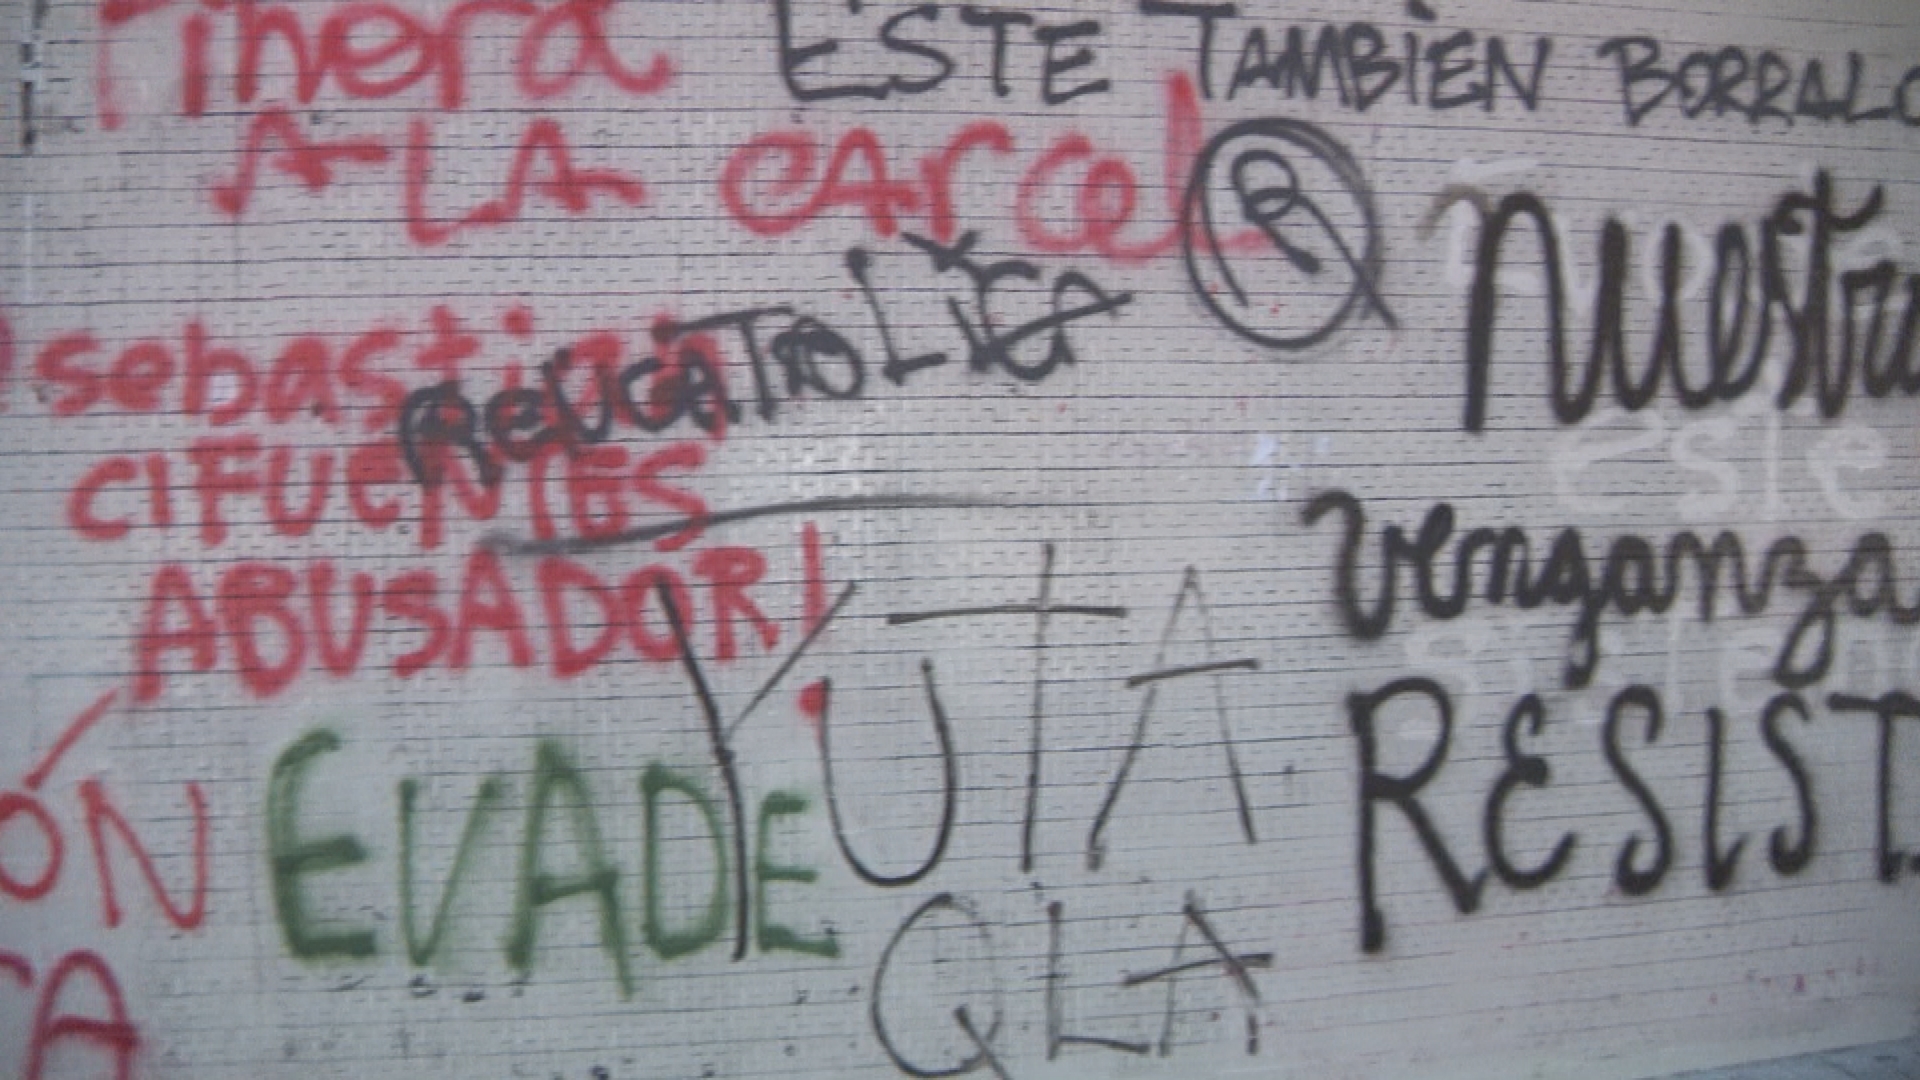 Piñera
A LA CARCEL
ESTE TAMBIEN BORRALO
sebastian
CIFUENTES
ABUSADOR!
Nuestra
este
venganza
RESIST
YUTA
QLA
EVADE
ÓN